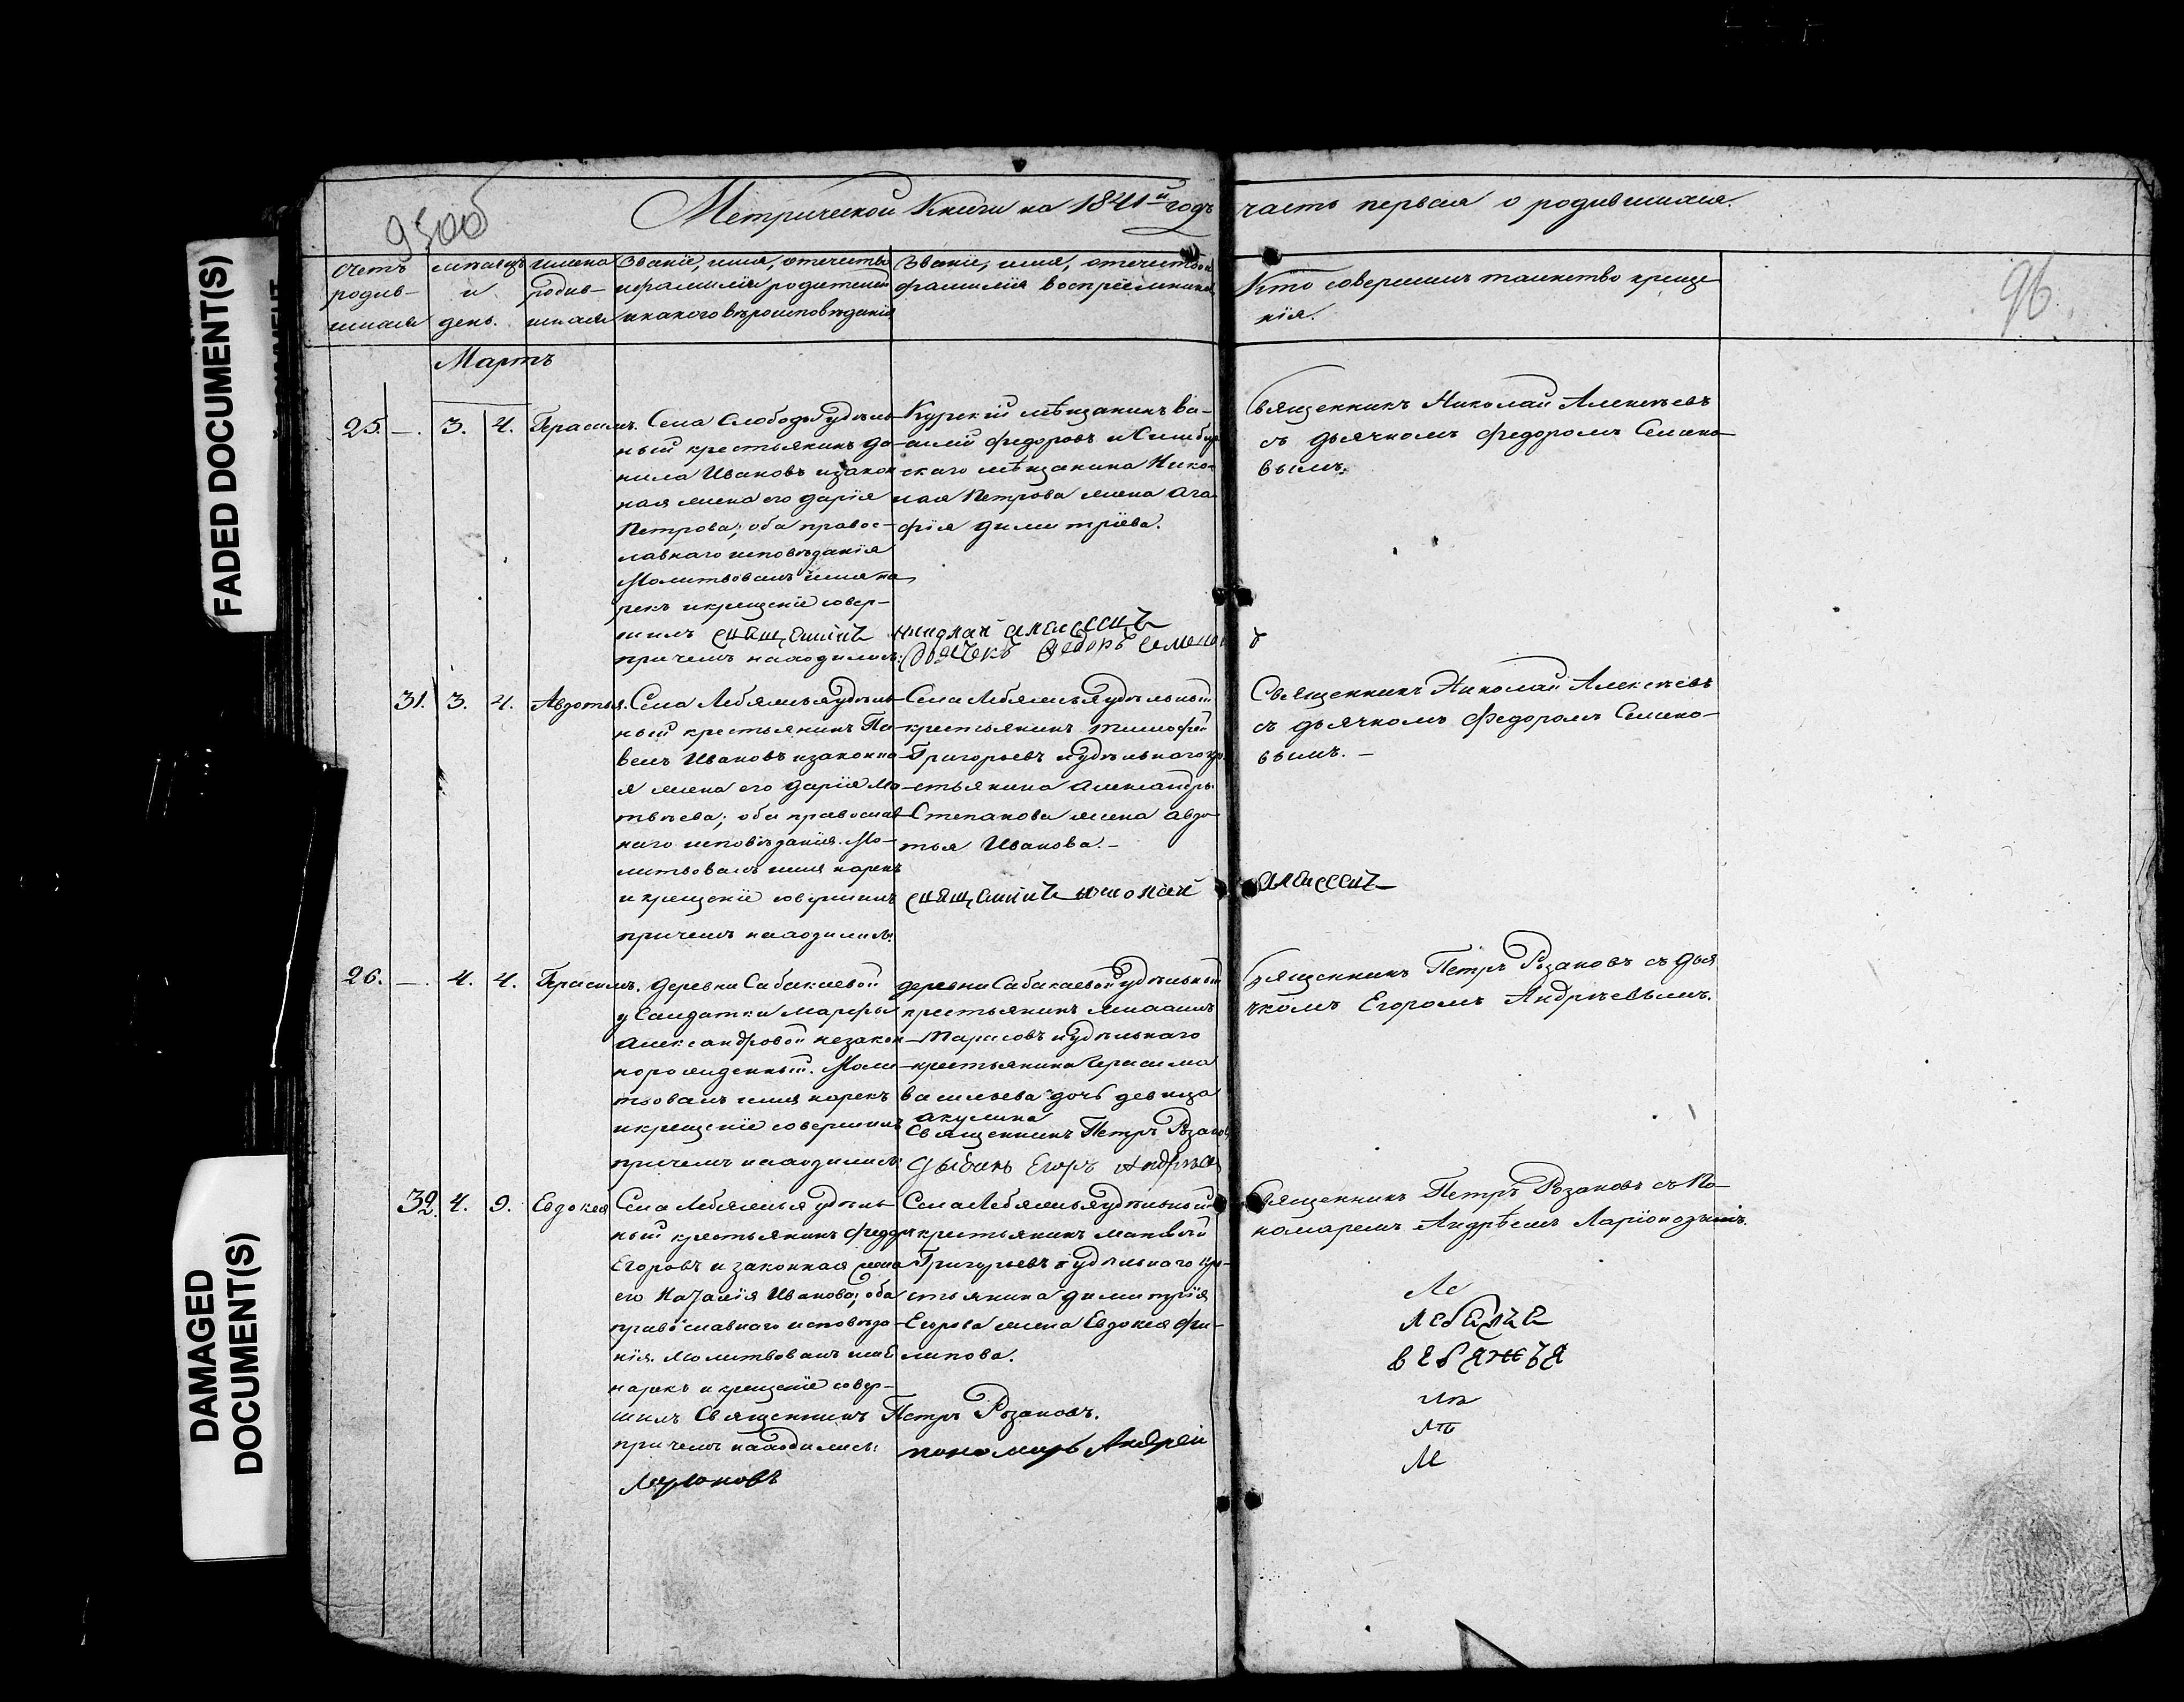 FADED DOCUMENT(S)
DAMAGED
DOCUMENT(S)
950об
96.
Метрической Книги на 1841й годъ часть первая о родившихся.
Счетъ
родив-
шихся
мѣсяцъ
и
день.
имена
родив-
шихся
Званіе, имя, отечество
и фамилія родителей
и какого вѣроисповѣданія
Званіе, имя, отечество и
фамилія воспріемниковъ
Кто совершилъ таинство креще
нія.
Мартъ
25. — 3. 4. Герасимъ.
Села Слободы удѣль-
ный крестьянинъ Да-
нила Ивановъ и закон
ная жена его Дарія
Петрова; оба правос-
лавнаго исповѣданія
Молитвовалъ имя на
рекъ и крещеніе совер-
шилъ священникъ Николай Алексеевъ
причемъ находились: Дьячекъ Федоръ Семеновъ
Курскій мѣщанинъ Ва-
силій Федоровъ и Симбир
скаго мѣщанина Нико-
лая Петрова жена Ага-
фія Димитріева.
Священникъ Николай Алексѣевъ
съ дьячкомъ Федоромъ Семено-
вымъ.
31. 3. 4. Авдотья.
Села Лебяжья удѣль-
ный крестьянинъ Па-
велъ Ивановъ и законна
я жена его Дарія Ма-
твѣева; оба православ
наго исповѣданія. Мо-
литвовалъ имя нарекъ
и крещеніе совершилъ священникъ Николай Алексеевъ
причемъ находились:
Села Лебяжья удѣльный
крестьянинъ Тимофей
Григорьевъ и удѣльнаго кр
естьянина Александра
Степанова жена Авдо-
тья Иванова. —
Священникъ Николай Алексѣевъ
съ дьячкомъ Федоромъ Семено-
вымъ. —
26. — 4. 4. Герасимъ.
Деревни Сабакаевой
у Солдатки Марфы
Александровой незакон
норожденный. Моли-
твовалъ имя нарекъ
и крещеніе совершилъ Священникъ Петръ Розановъ
причемъ находились: Дьячекъ Егоръ Андрѣевъ
деревни Сабакаевой удѣльный
крестьянинъ
Тарасовъ и удѣльнаго
крестьянина Герасима
Васильева дочь девица
Акулина
Священникъ Петръ Розановъ съ дья
чкомъ Егоромъ Андрѣевымъ.
32. 4. 9. Евдокея
Села Лебяжья удѣль-
ный крестьянинъ Федоръ
Егоровъ и законная жена
его Наталія Иванова; оба
православнаго исповѣда-
нія. Молитвовалъ имя
нарекъ и крещеніе совер-
шилъ Священникъ Петръ Розановъ.
причемъ находились: пономарь Андрей
Ларіоновъ
Села Лебяжья удѣльный
крестьянинъ
Григорьевъ и удѣльнаго кре-
стьянина Димитрія
Егорова жена Евдокея Фи-
липова.
Священникъ Петръ Розановъ съ По-
номаремъ Андрѣемъ Ларіоновымъ.
Ле
ле
Ле